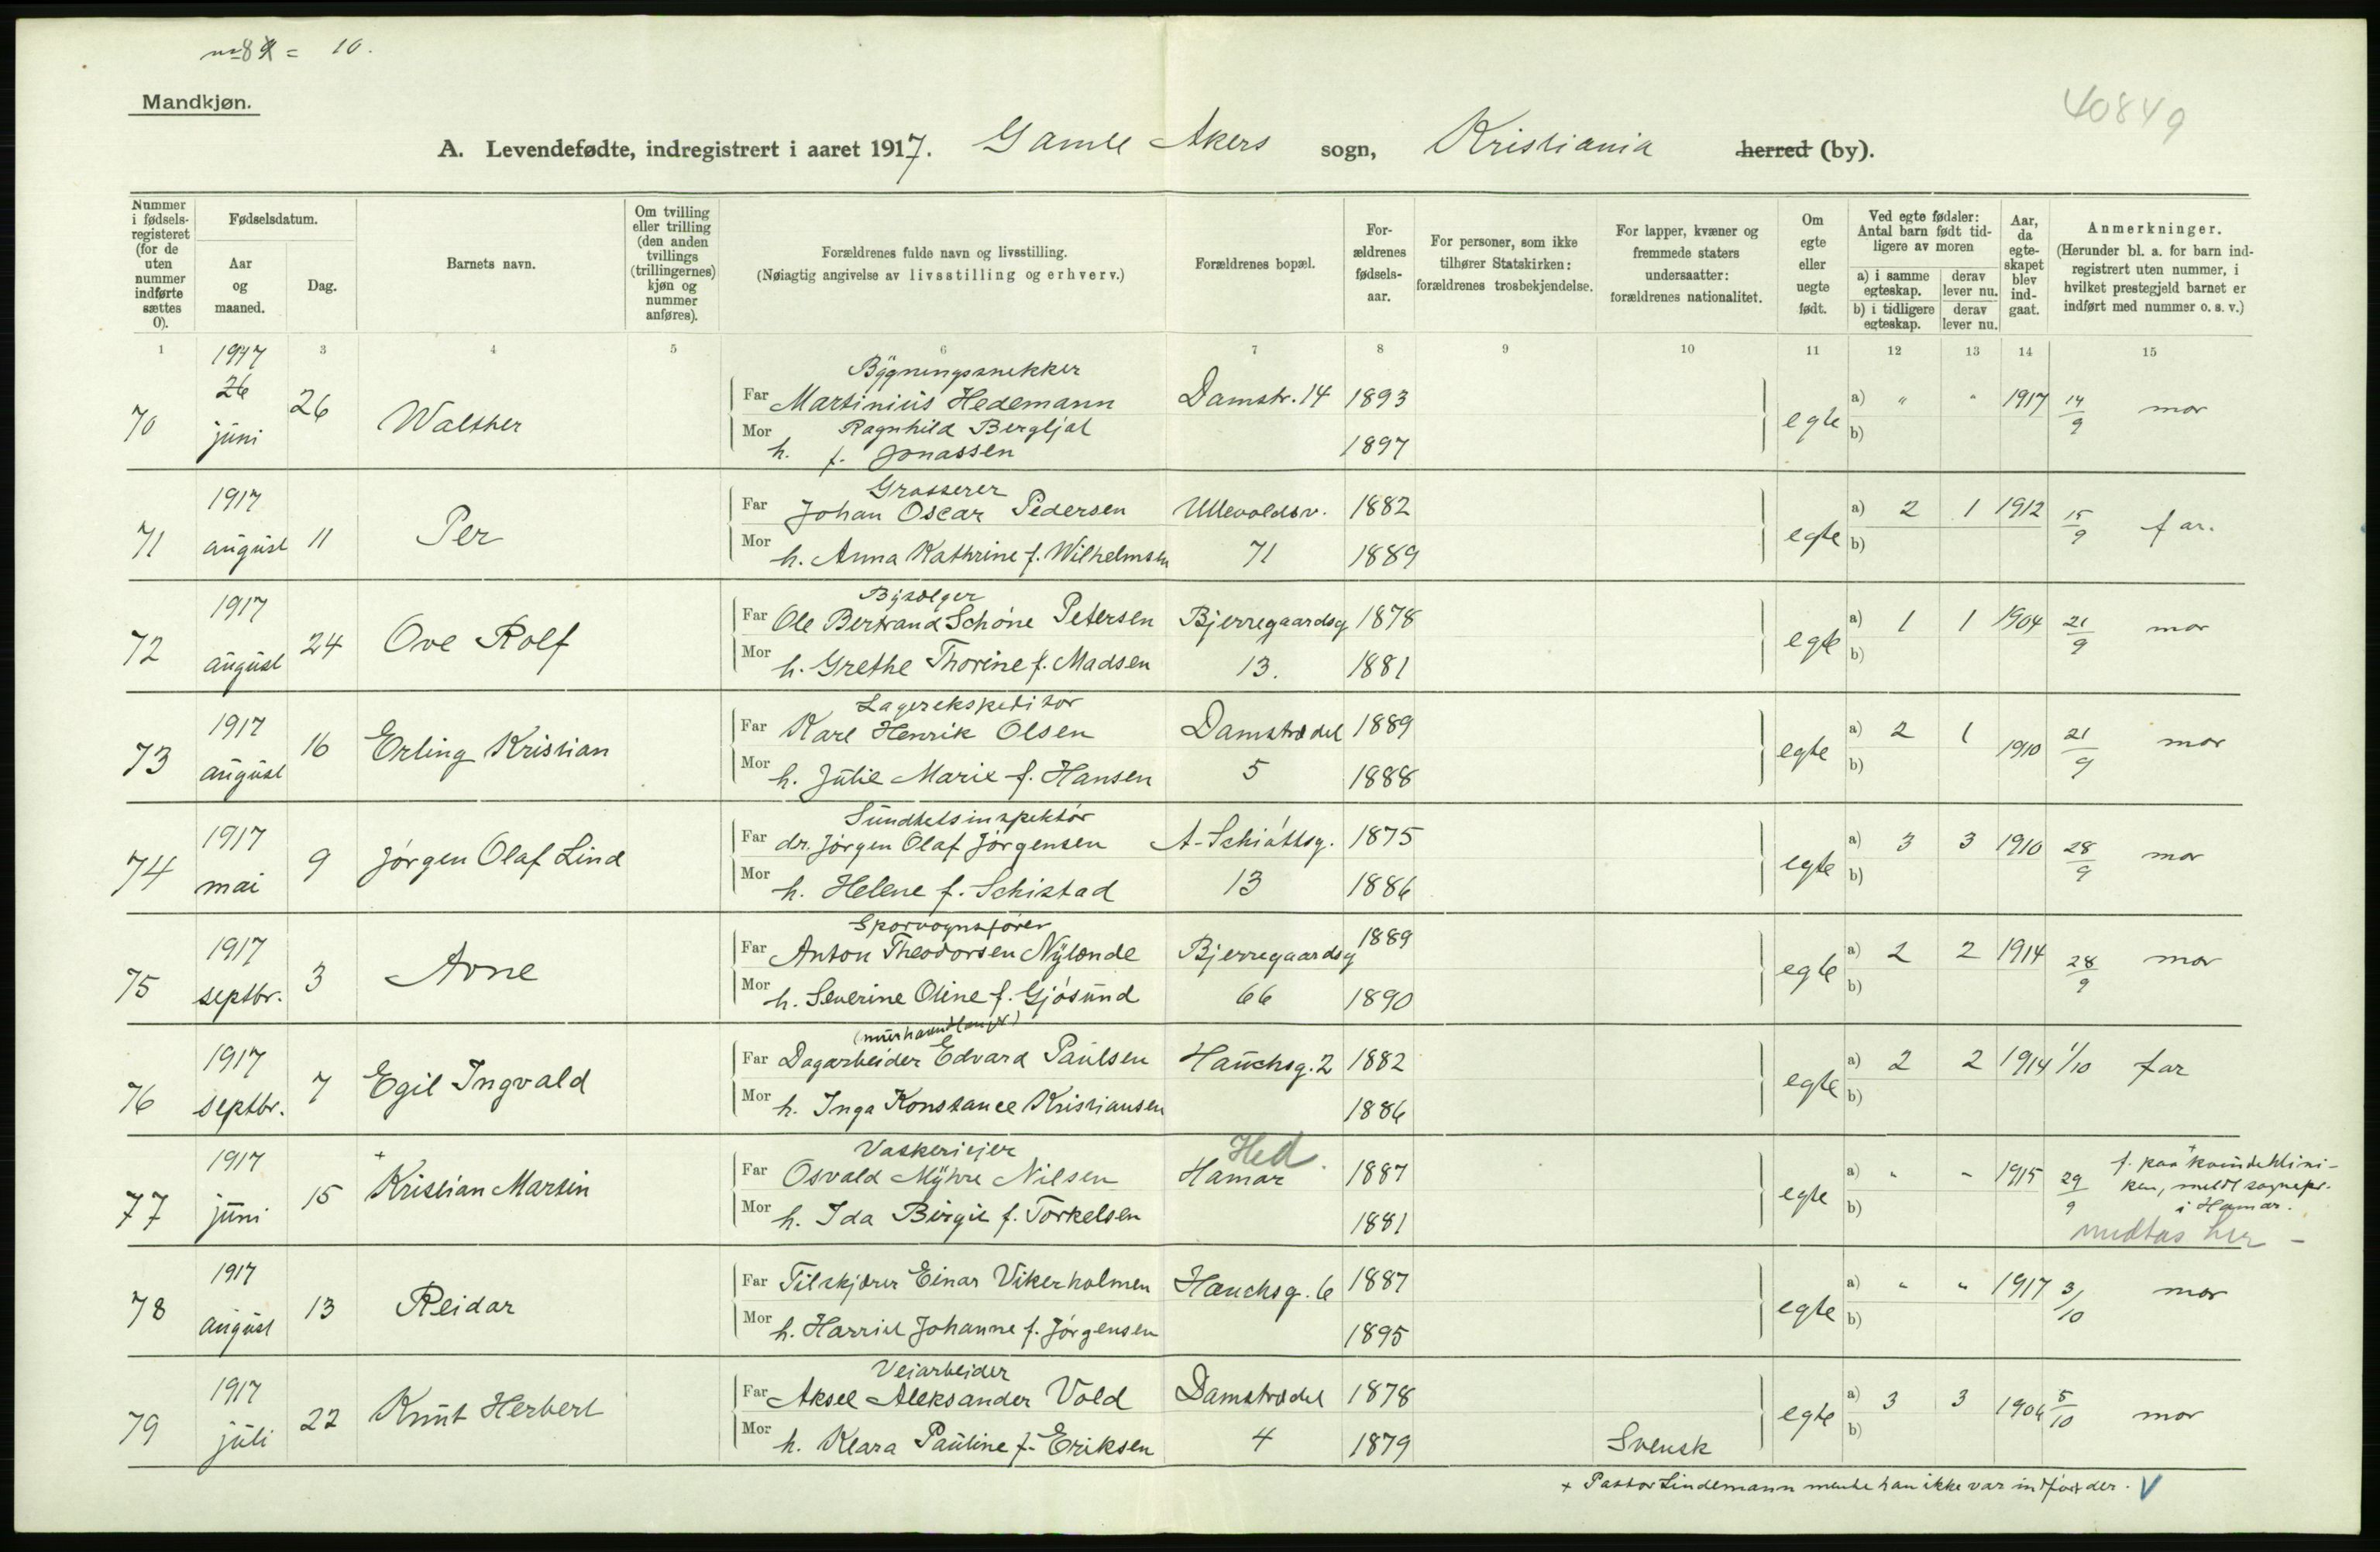 = 10.
Mandkjøn.
40849
A. Levendefødte, indregistrert i aaret 1917. Gamle Akers sogn, Kristiania herred (by).
Nummer i fødsels-registeret (for de uten nummer indførte sættes 0).
Fødselsdatum.
Aar og maaned.
Dag.
Barnets navn.
Om tvilling eller trilling (den anden tvillings (trillingernes) kjøn og nummer anføres).
Forældrenes fulde navn og livsstilling.
(Nøiagtig angivelse av livsstilling og erhverv.)
Forældrenes bopæl.
For-ældrenes fødsels-aar.
For personer, som ikke tilhører Statskirken: forældrenes trosbekjendelse.
For lapper, kvæner og fremmede staters undersaatter: forældrenes nationalitet.
Om egte eller uegte født.
Ved egte fødsler: Antal barn født tid-ligere av moren
a) i samme egteskap.
derav lever nu.
b) i tidligere egteskap.
derav lever nu.
Aar, da egte-skapet blev ind-gaat.
Anmerkninger.
(Herunder bl. a. for barn ind-registrert uten nummer, i hvilket prestegjeld barnet er indført med nummer o. s. v.)
1 3 4 5 6 7 8 9 10 11 12 13 14 15
1917 Bygningssnekker
26 Far Martinius Hedemann Damstr. 14 1893 a) " " 1917 14/9 mor
70 juni 26 Walther egte
Mor Ragnhild Bergljot b)
h. f. Jonassen 1897
1917 Grosserer
Far Johan Oscar Pedersen Ullevoldsv. 1882 a) 2 1 1912 15/9 far.
71 august 11 Per egte b)
Mor h. Anna Kathrine f. Wilhelmsen 71 1889
1917 Bysælger
Far Ole Bertrand Schöne Petersen Bjerregaardsg 1878 a) 1 1 1904 21/9 mor
72 august 24 Ove Rolf egte b)
Mor h. Grethe Thorine f. Madsen 13. 1881
1917 Lagerekspeditor
Far Karl Henrik Olsen Damstrædet 1889 a) 2 1 1910 21/9 mor
73 august 16 Erling Kristian egte b)
Mor h. Julie Marie f. Hansen 5 1888
1917 Sundhetsinspektör
Far dr. Jörgen Olaf Jörgensen A. Schiøttsg. 1875 a) 3 3 1910 28/9 mor
74 mai 9 Jörgen Olaf Lind egte b)
Mor h. Helene f. Schistad 13 1886
1917 Sporvognsfører
Far Anton Theodorsen Nylænde Bjerregaardsg 1889 a) 2 2 1914 28/9 mor
75 septbr. 3 Arne egte b)
Mor h. Severine Oline f. Gjösund 66 1890
1917 (murhaandlanger)
Far Dagarbeider Edvard Paulsen Hauchsg. 2 1882 a) 2 2 1914 1/10 far
76 septbr. 7 Egil Ingvald egte b)
Mor h. Inga Konstance Kristiansen 1886
1917 Vaskerieier Hed.
Far Osvald Myhre Nilsen Hamar 1887 a) " " 1915 29/9 f. paa kvindeklini-
77 juni 15 + Kristian Martin egte b) ken, meldt sognepr.
Mor h. Ida Birgit f. Torkelsen 1881 i Hamar.
medtas her -
1917
Far Tilskjærer Einar Vikerholmen Hauchsg. 6 1887 a) " " 1917 3/10 mor
78 august 13 Reidar egte b)
Mor h. Harriet Johanne f. Jörgensen 1895
1917 Veiarbeider
Far Aksel Aleksander Vold Damstrædet 1878 a) 3 3 1906 5/10 mor
79 juli 22 Knut Herbert egte b)
Mor h. Klara Pauline f. Eriksen 4 1879 Svensk
+ Pastor Lindemann mente han ikke var indført der. V